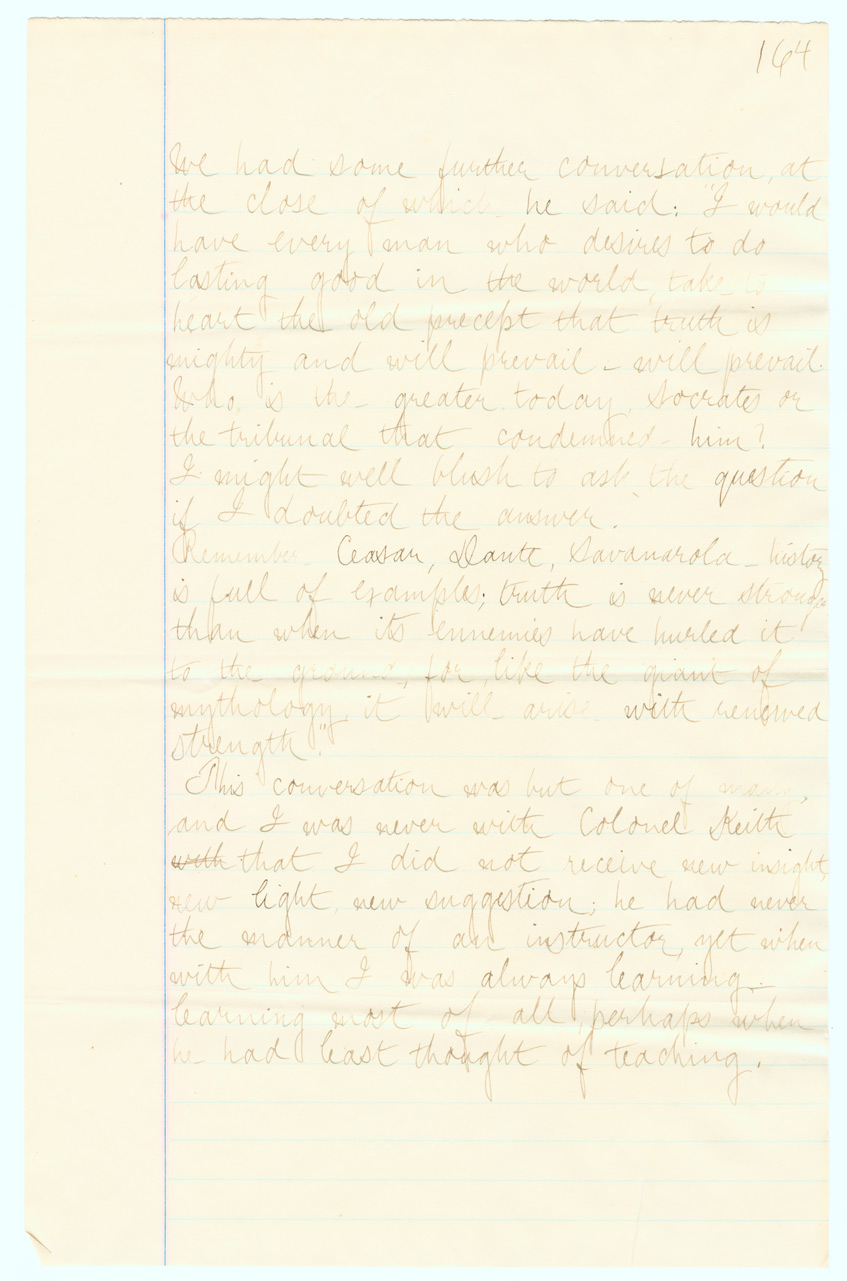 164
We had some further conversation, at
the close of which he said: "I would
have every man who desires to do
lasting good in the world, take to
heart the old precept that truth is
mighty and will prevail - will prevail.
Who is the greater today, Socrates or
the tribunal that condemned him?
I might well blush to ask the question
if I doubted the answer.
Remember Ceasar, Dante, Savanarola - history
is full of examples; truth is never stronger
than when its ennemies have hurled it
to the ground, for, like the giant of
mythology, it will arise with renewed
strength."
This conversation was but one of many,
and I was never with Colonel Keith
with that I did not receive new insight,
new light, new suggestion; he had never
the manner of an instructor, yet when
with him I was always learning -
learning most of all, perhaps when
he had least thought of teaching.